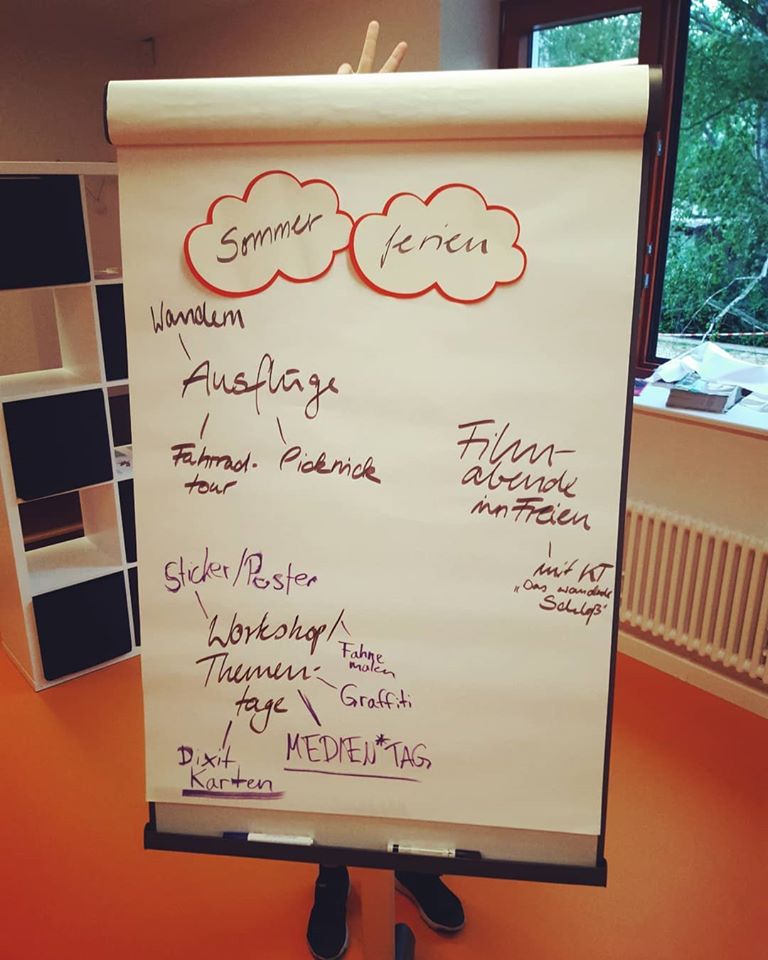 Sommer ferien
Wandern
Ausflüge
Fahrrad-
tour
Picknick
Film-
abende
im Freien
mit KT
"Das wandelnde
Schloß"
Sticker/Poster
Workshop/
Themen-
tage
Fahne
malen
Graffiti
MEDIEN*TAG
Dixit
Karten